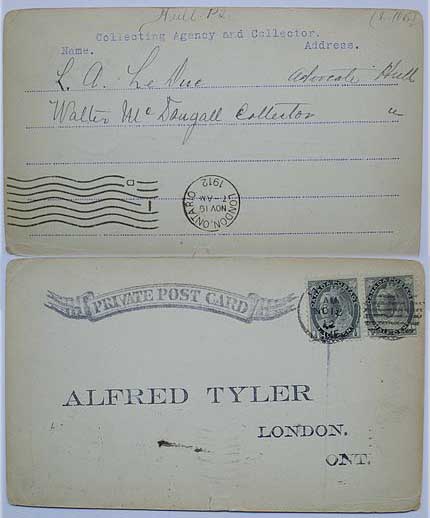 Hull PQ
Collecting Agency and Collector.
Name. Address.
L. A. Le Duc Advocate Hull
Walter McDougall Collector "
D
1
LONDON, ONTARIO
NOV 19
-AM
1912
PRIVATE POST CARD
AM
12
ALFRED TYLER
LONDON.
ONT.